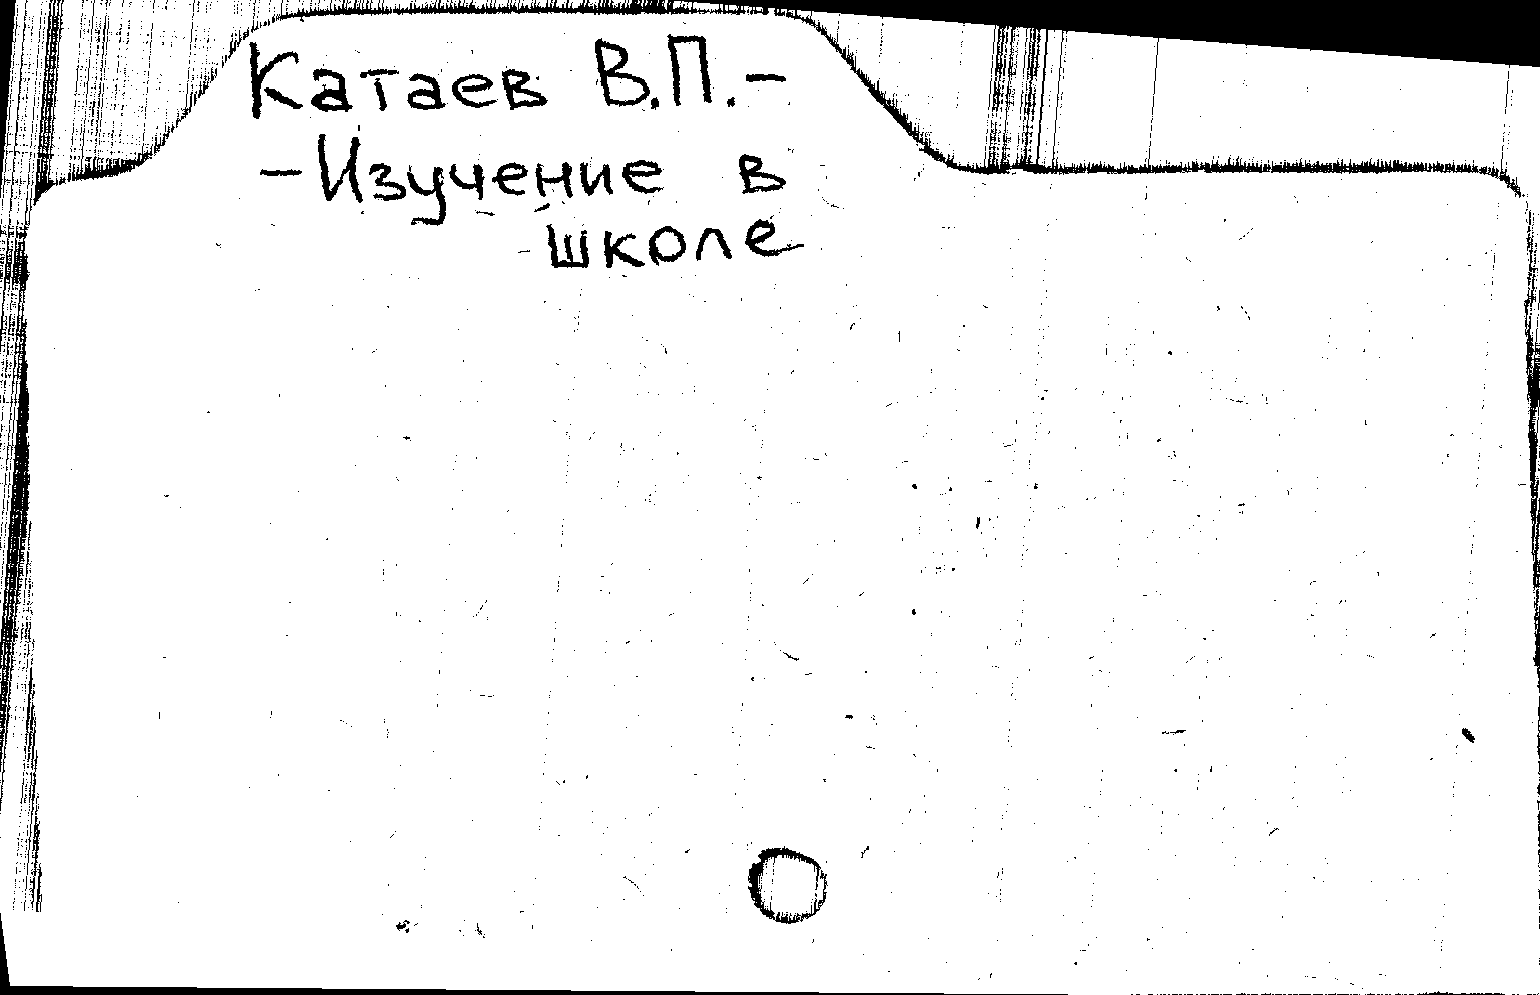 Катаев В.П.-
-Изучение в
школе